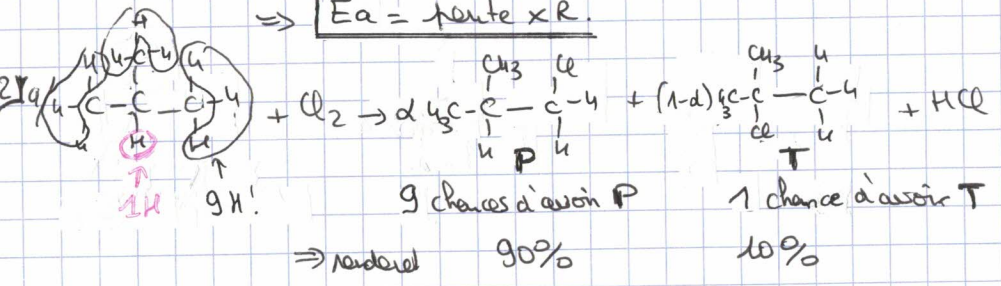 ⇒ Ea = pente x R.
2) a) H H-C-H H
H-C - C - C-H + Cl2 → α H3C-C(CH3)(H) — C(Cl)(H)-H + (1-α) H3C-C(CH3)(Cl) — C(H)(H)-H + HCl
H H H
P T
1H 9H! 9 chances d'avoir P 1 chance d'avoir T
⇒ rendement 90% 10%